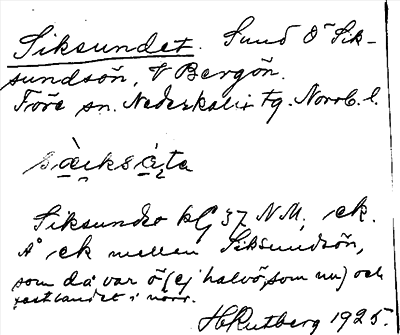 Siksundet. Sund Ö Sik-
sundsön, V Bergön.
Töre sn. Nederkalix tg. Norrb. l.
Siksundet kG 37 NM, ek.
Å ek mellan Siksundsön,
som då var ö (ej halvö, som nu) och
fastlandet i norr.
H Rutberg 1925.